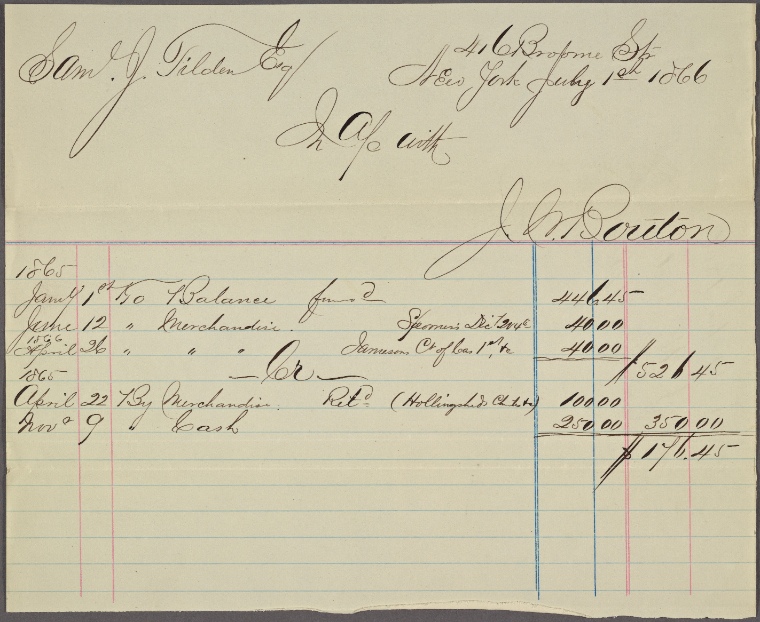 Saml. J. Tilden Esq
416 Broome St.
New York July 1st 1866
In a/c with
J. W. Bouton
1865
Jany 1st To Balance 446.45
June 12 " Merchandise. 40 00
1866
April 26 " " " Jamesons 1st &c 40 00
$526 45
1865
Cr
April 22 By Merchandise. Retd (Hollingsheds 100 00
Nov 9 " Cash 250 00 350 00
$176.45